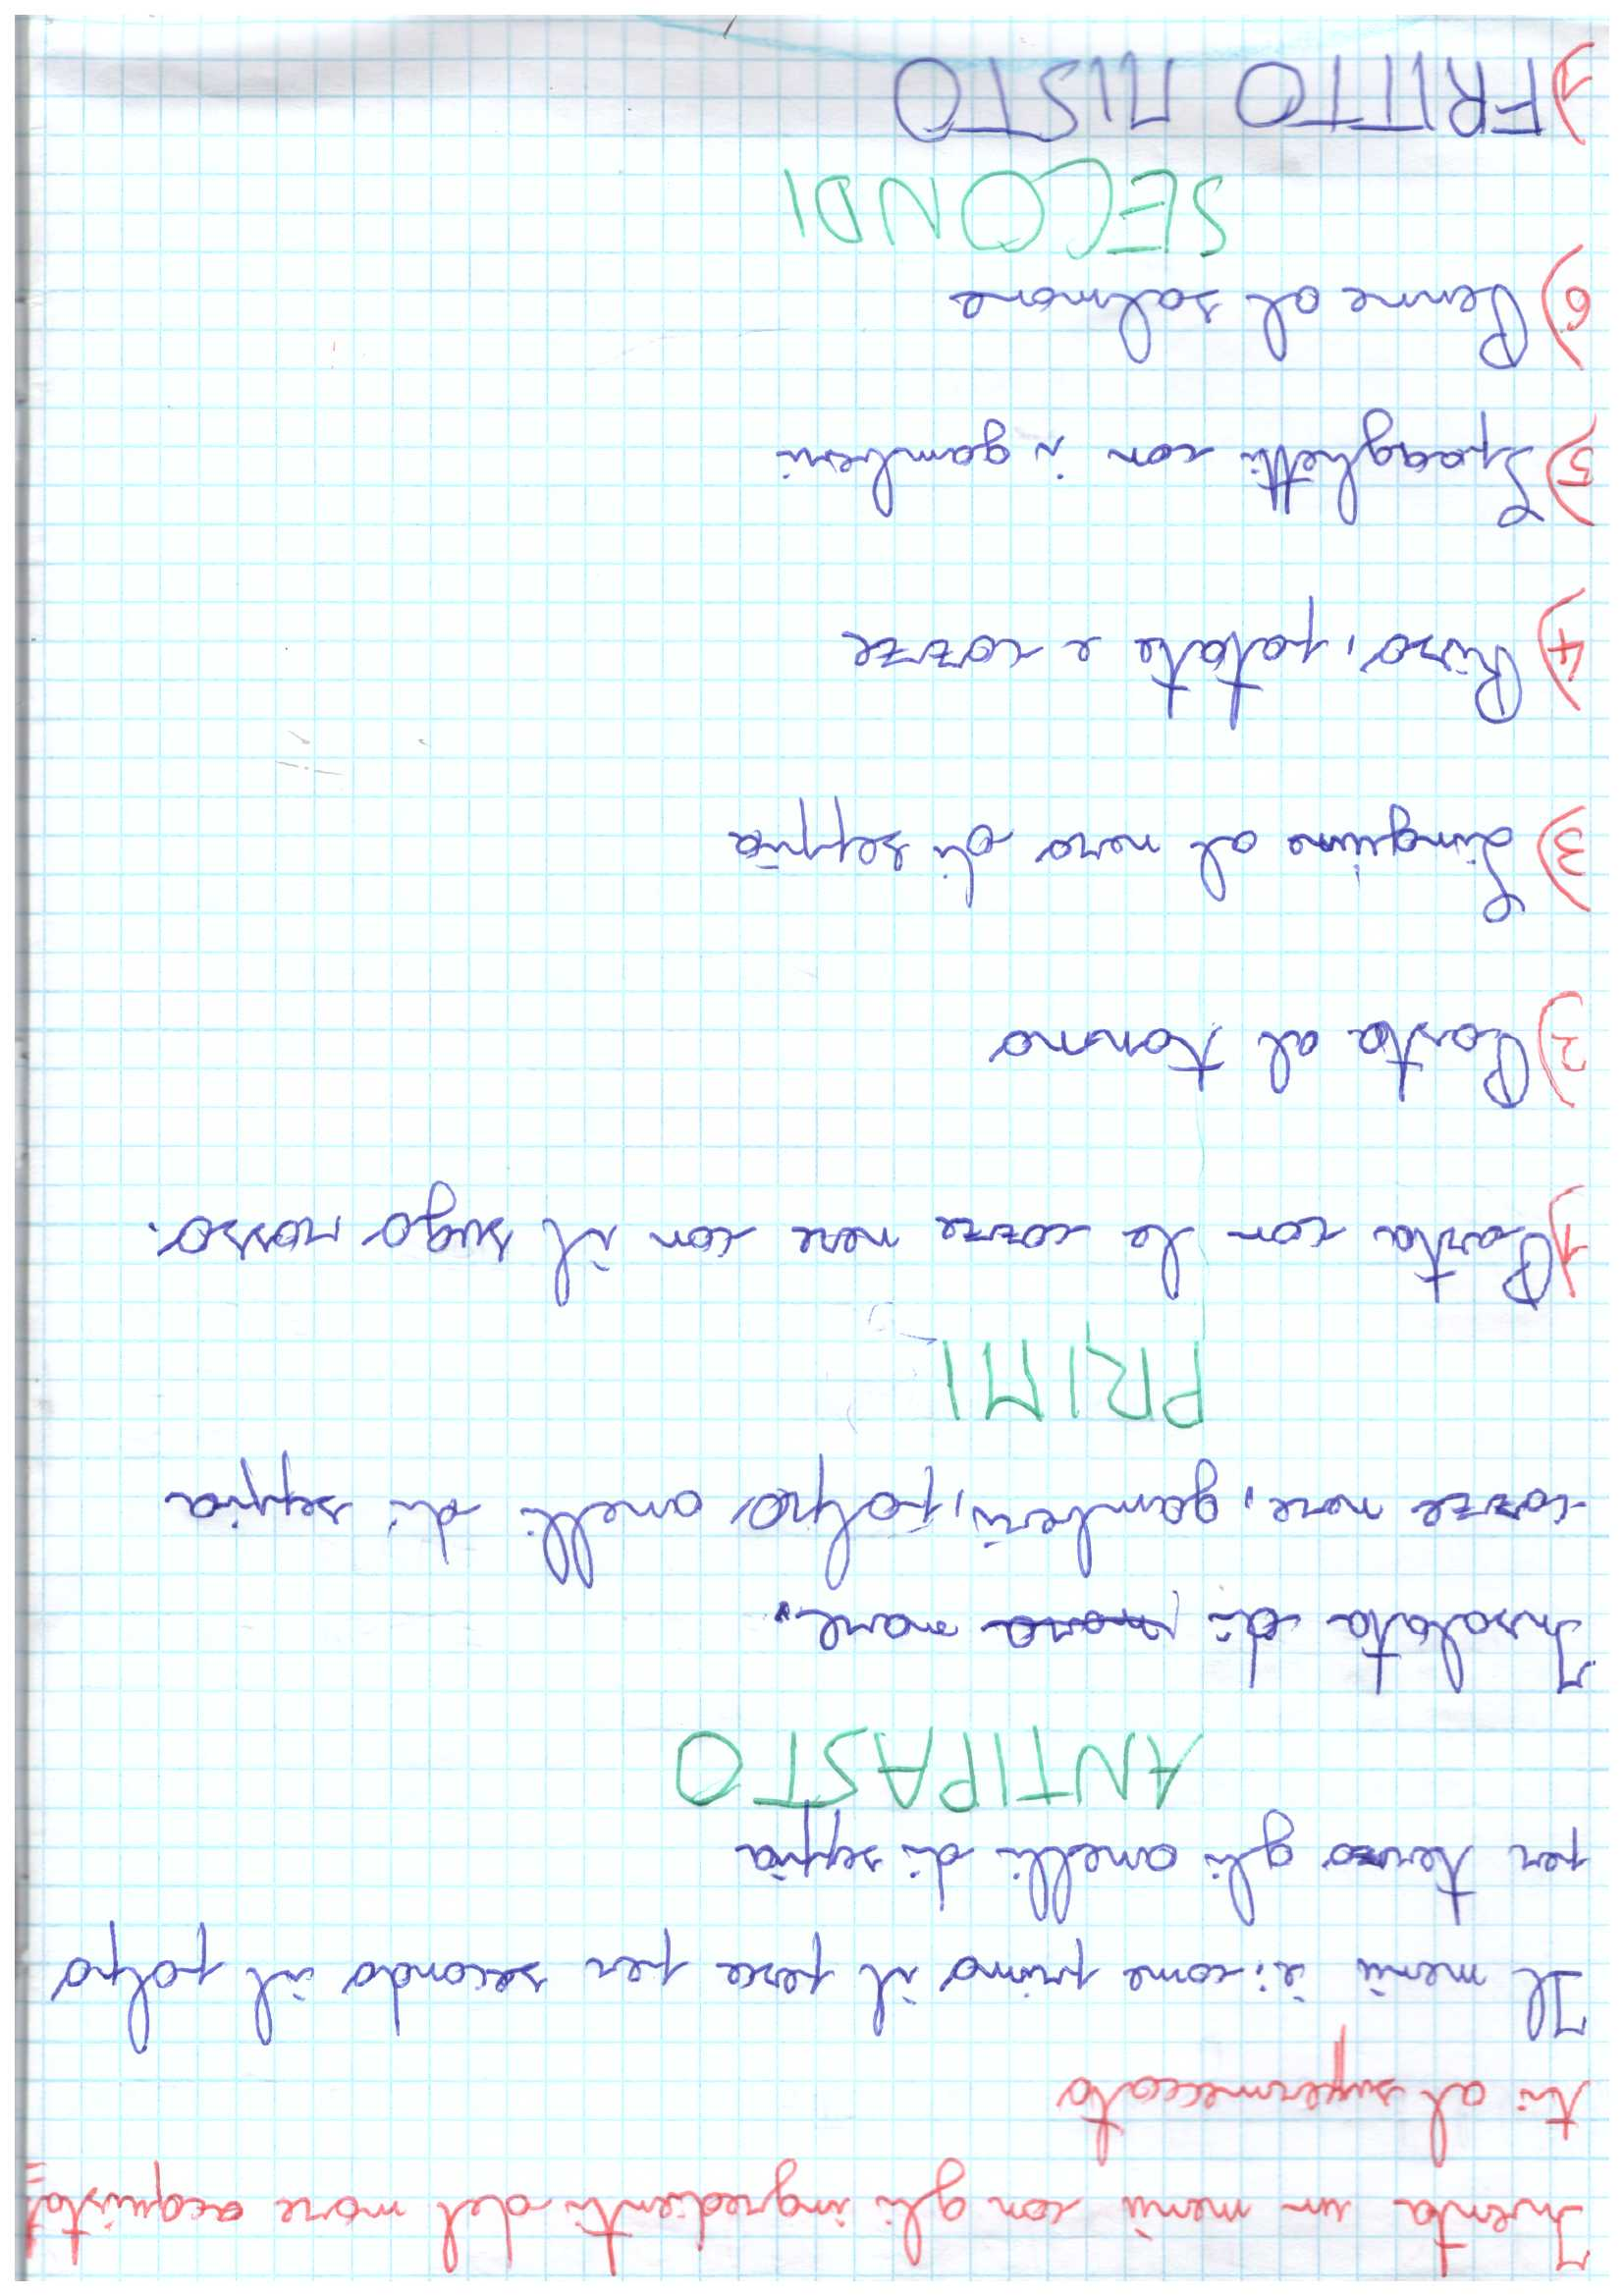 Inventa un menù con gli ingredienti del mare acquista=
ti al supermercato
Il menù è: come primo il pesce per secondo il polpo
per terzo gli anelli di seppia
ANTIPASTO
Insalata di mare.
-cozze nere, gamberi, polpo, anelli di seppia
PRIMI
1) Pasta con le cozze nere con il sugo rosso.
2) Pasta al tonno
3) Linguine al nero di seppia
4) Riso, patate e cozze
5) Spaghetti con i gamberi
6) Penne al salmone
SECONDI
1) FRITTO MISTO